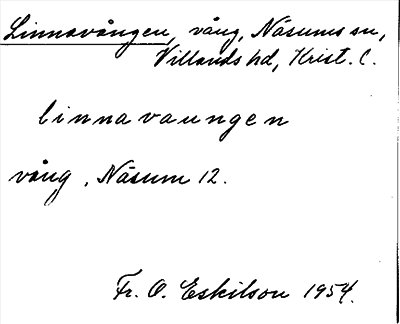 Linnavången, vång, Näsums sn,
Villands hd, Krist. l.
linnavaungen
vång, Näsum 12.
Fr. O. Eskilson 1954.